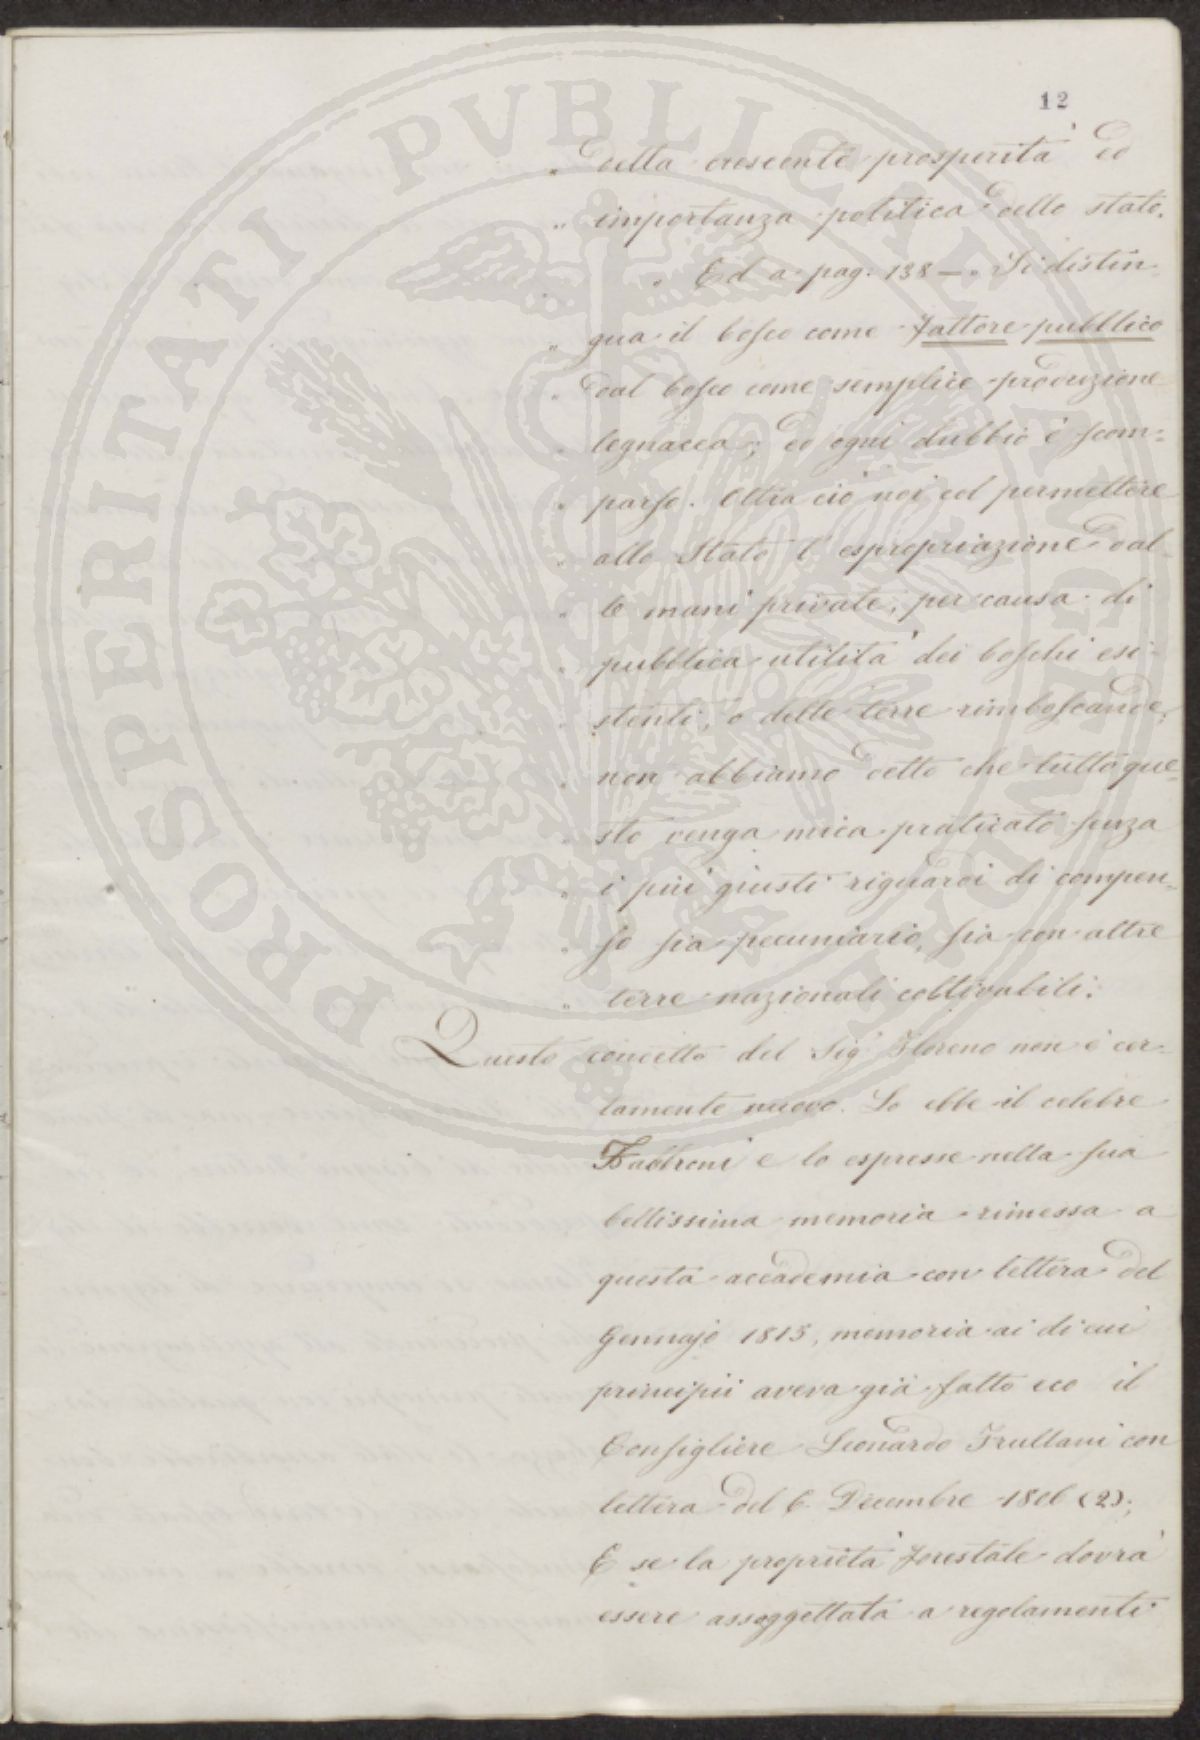 12
„ della crescente prosperità ed
„ importanza politica dello stato.
„ Ed a pag. 138 — „ Si distin-
„ gua il bosco come fattore pubblico
„ dal bosco come semplice produzione
„ legnacea; ed ogni dubbio è scom=
„ parso. Oltra ciò noi col permettere
„ allo Stato l'espropriazione dal
„ le mani private, per causa di
„ pubblica utilità dei boschi esi-
„ stenti, o delle terre rimboscande,
„ non abbiamo detto che tutto que=
„ sto venga mica praticato senza
„ i più giusti riguardi di compen=
„ so sia pecuniario, sia con altre
„ terre nazionali coltivabili.
Questo concetto del Sig. Floreno non è cer=
tamente nuovo. Lo ebbe il celebre
Fabbroni e lo espresse nella sua
bellissima memoria rimessa a
questa accademia con lettera del
Gennajo 1815, memoria ai di cui
principii aveva già fatto eco il
Consigliere Leonardo Frullani con
lettera del 6. Decembre 1806 (2);
E se la proprietà forestale dovrà
essere assoggettata a regolamenti
PROSPERITATI PUBLICAE AUGENDAE